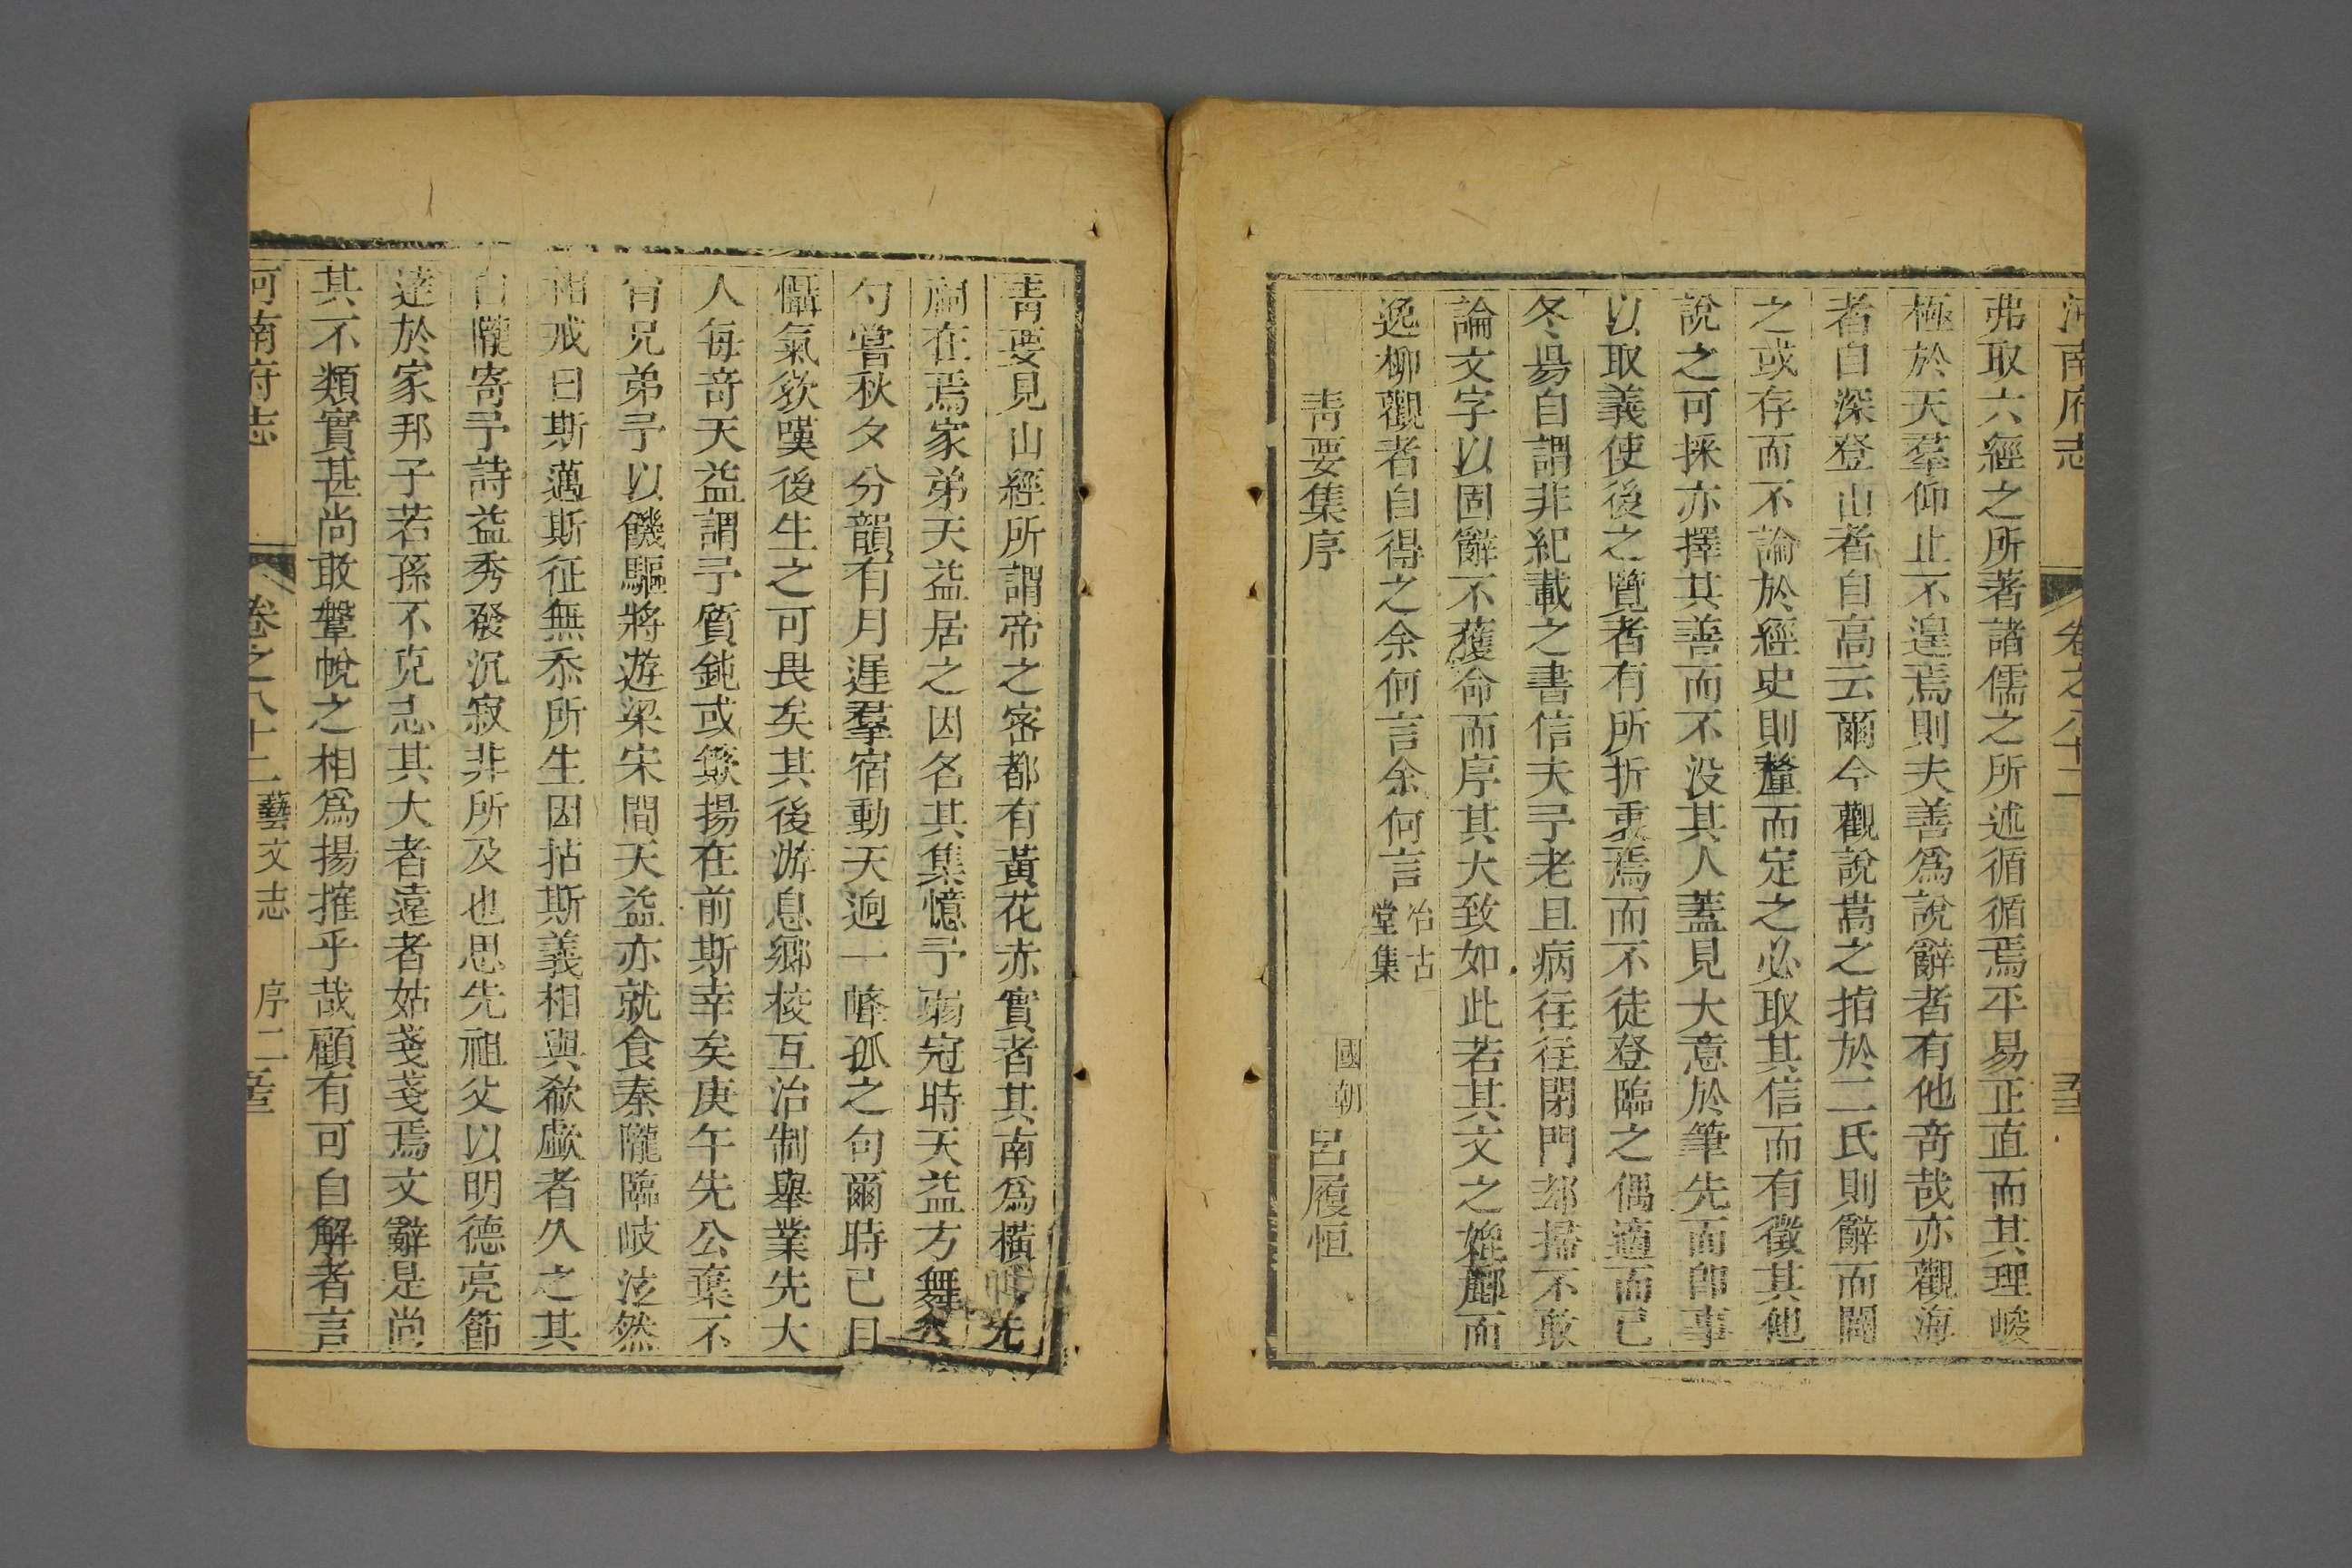 河南府志 卷之八十二
弗取六經之所著諸儒之所述循循焉平易正直而其理峻
極於天羣仰止不遑焉則夫善爲說辭者有他奇哉亦觀海
者自深登山者自高云爾今觀說嵩之揩於二氏則辭而闢
之或存而不論於經史則釐而定之必取其信而有徵其他
說之可採亦擇其善而不没其人蓋見大意於筆先而即事
以取義使後之覽者有所折衷焉而不徒登臨之偶適而已
冬昜自謂非紀載之書信夫予老且病往往閉門却掃不敢
論文字以固辭不獲命而序其大致如此若其文之姙郿而
逸柳觀者自得之余何言余何言 冶古堂集
青要集序 國朝 呂履恒
青要見山經所謂帝之密都有黃花赤實者其南爲橫 先
廟在焉家弟天益居之因名其集憶予弱冠時天益方舞勺
勺嘗秋夕分韻有月遲羣宿動天逈一峰孤之句爾時已且
懾氣欬嘆後生之可畏矣其後游息鄉校互治制舉業先大
人每奇天益謂予質鈍或簸揚在前斯幸矣庚午先公棄不
肖兄弟予以饑驅將遊梁宋間天益亦就食秦隴臨岐泫然
相戒曰斯邁斯征無忝所生因拈斯義相與欷歔者久之其
自隴寄予詩益秀發沉寂非所及也思先祖父以明德亮節
達於家邦子若孫不克忘其大者遠者姑戔戔焉文辭是尚
其不類實甚尚敢鞶帨之相爲揚搉乎哉顧有可自解者言
河南府志 卷之八十二 藝文志 序二